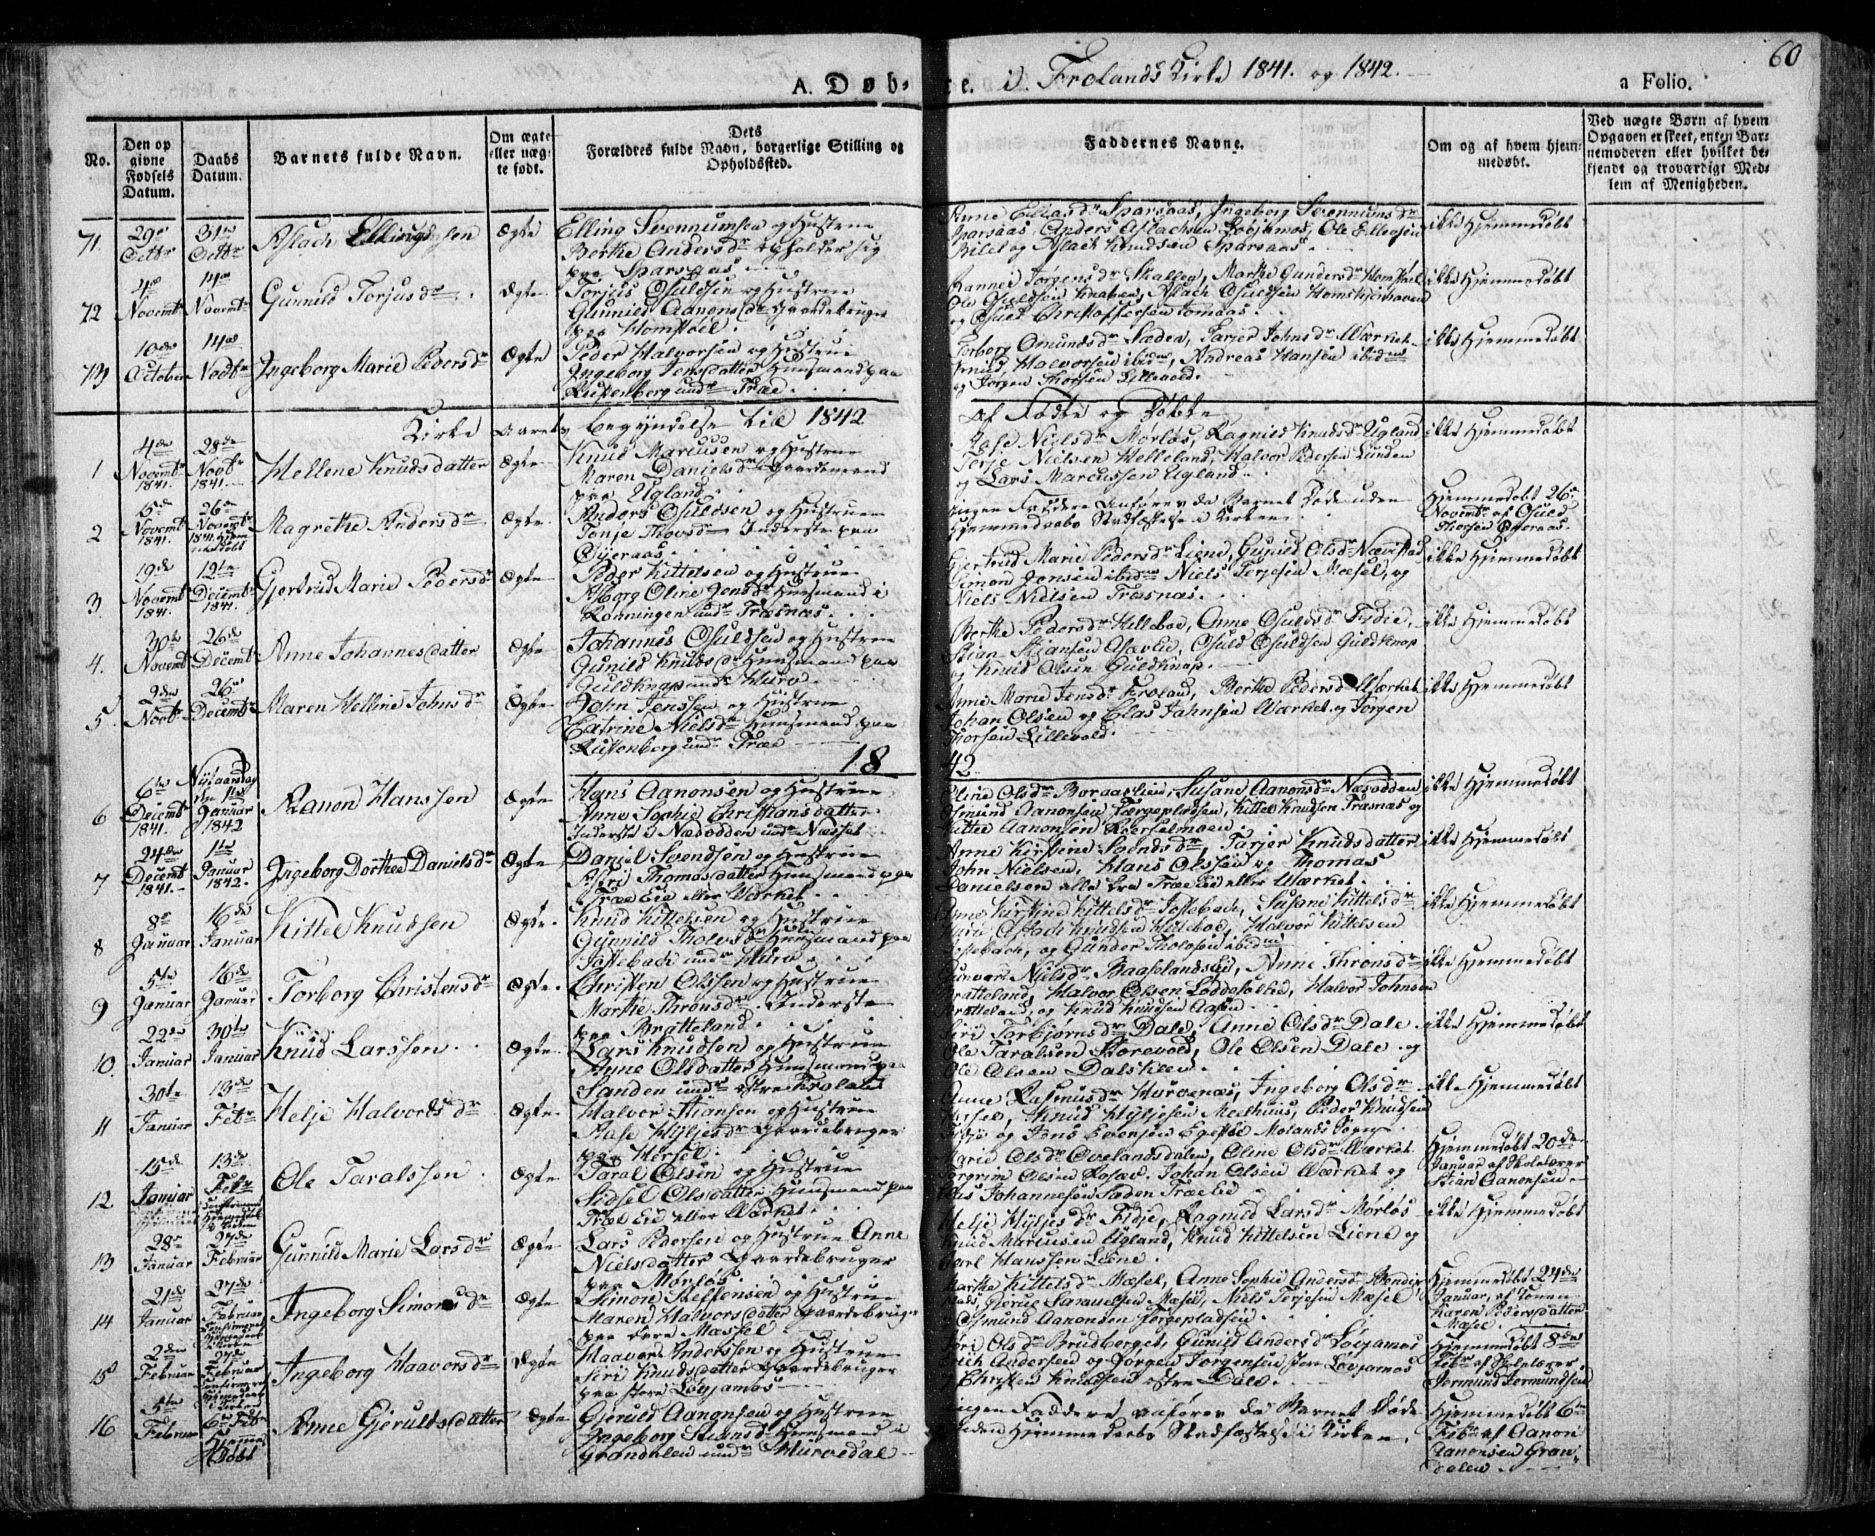 60
A. Døb- te. i. Frolands Kirke 1841. og 1842.
a Folio.
No.
Den op givne Fødsels Datum.
Daabs Datum.
Barnets fulde Navn.
Om ægte eller uæg- te født.
Dets Forældres fulde Navn, borgerlige Stilling og Opholdssted.
Faddernes Navne.
Om og af hvem hjem- medøbt.
Ved uægte Børn af hvem Opgaven er skeet, enten Bar- nemoderen eller hvilket be- kjendt og troværdigt Med- lem af Menigheden.
71. 29de Octbr 31te Octbr Aslach Ellingssen Ægte Elling Svennumsen og Hustrue
Berthe Andersdr opholder sig
paa Sparsaas
Anne Eliasdr Sparsaas, Ingeborg Svennumsdr
Sparsaas, Anders Aslachsen Løvjomås, Ole Ellevsen
og Aslach Knudsen Sparsaas
ikke Hjemmedøbt
72 Novembr 14de Novembr Gunnild Torjusdr Ægte Torjus Osuldsen og Hustrue
Gunnild Aanonsdr Gaardebruger
paa Homstøel
Jørgensdr Skallen, Marthe Gundersdr Homstøel
Ole Osuldsen Knaben, Aslach Osuldsen
og Osuld Christoffersen Tomaas
ikke Hjemmedøbt
73 10de October 14de Novbr Ingeborg Marie Pedersdr Ægte Peder Halvorsen og Hustrue
Ingeborg Jensdatter Huusmand paa
Risenberg undr Træe
Torborg Omundsdr Staden, Tarjer Johnsdr Værket
Halvorsen ibidm, Andreas Hansen ibidm
og Jørgen Thorsen Lillevold
ikke Hjemmedøbt
Kirke Aarets begyndelse til 1842 af Fødte og Døbte
1 4de Novembr 1841. 28de Novbr 1841. Hellene Knudsdatter Ægte Knud Marcussen og Hustrue
Maren Danielsdr Gaardmand
paa Ugland
Aase Nielsdr Mørløs, Ragnild Knudsdr Ugland
Terje Nielsen Helleland, Halvor Pedersen Lunden
og Lars Marcussen Ugland
ikke Hjemmedøbt
2 Novembr 1841. 26de Novembr 1841. Magrethe Andersdr Ægte Anders Osuldsen og Hustrue
Tonje Thorsdr Inderste paa
Ingen Faddere Anføres da Barnet Døde uden
Hjemmedaabs Stadfæstelse i Kirken
Hjemmedøbt 26de
Novembr af Osuld
Thorsen
3. 19de Novembr 1841. 12te Decembr 1841. Gjertrud Marie Pedersdr Ægte Peder Kittelsen og Hustrue
Asborg Oline Jensdr Huusmand i
Rønningen undr Træsnæs
Gjertrud Marie Pedersdr Liene, Gunild Olsdr
Simon Jensen ibidm Niels Terjesen Mæsel, og
Niels Nielsen Træsnæs
ikke Hjemmedøbt
4. 30te Novembr 26de Decembr Anne Johannesdatter Ægte Johannes Osuldsen og Hustrue
Gunild Knudsdr Huusmand paa
Guldknap undr Hurv
Berthe Pedersdr Helleboe, Anne Osulsdr Fidie
Stian Stiansen, Osuld Osuldsen Guldknap
og Knud Olsen Guldknap
ikke Hjemmedøbt
5 2den Novbr 26de Decembr Maren Helline Johnsdr Ægte John Jenssen og Hustrue
Catrine Nielsdr Huusmand paa
Risenberg undr Træe
Anne Marie Jensdr Froland, Berthe Pedersdr Værket
Johan Olsen og Elias Jahnsen Værket og Jørgen
Thorsen Lillevold
ikke Hjemmedøbt
18 42
6 6te Decembr 1841. Nytaarsdag den 1ste Januar 1842 Aanon Hanssen Ægte Hans Aanonsen og Hustrue
Anne Sophie Christiansdatter
Inderste i Næsodden undr Næsset
Oline Olsdr Boraaslien, Susane Aanonsdr Næsodden
Osmund Aanonsen Færgepladsen, Kittel Knudsen Træsnæs og
Kittel Aanonsen
ikke Hjemmedøbt
7 24de Decembr 1841. 1te Januar 1842. Ingeborg Dorthee Danielsdr Ægte Daniel Svendsen og Hustrue
Thomasdatter Huusmand paa
Træe Eie eller Værket
Anne Kirstine Svendsdr, Tarjer Knudsdatter
John Nielsen, Hans Olssen og Thomas
Danielsen alle fra Træe Eie eller Værket
ikke Hjemmedøbt
8 8de Januar 16de Januar Kittel Knudsen Ægte Knud Kittelsen og Hustrue
Gunnild Tholvsdr Huusmand paa
Jossebach undr Hurv
Anne Kirstine Kittelsdr Jossebach, Susane Kittelsdr
Hurv, Aslach Knudsen Helleboe, Halvor Kittelsen
Jossebach, og Gunder Tholvsen ibidm
ikke Hjemmedøbt
9 5te Januar 16de Januar Torborg Christensdr Ægte Christen Olssen og Hustrue
Marthe Thronsdr Inderste
paa Bratteland
Gunvor Nielsdr Baaselandslid, Anne Thronsdr
Bratteland, Halvor Olsen Loddesølie, Halvor Johnsen
Bratteland, og Knud Knudsen Aasen
ikke Hjemmedøbt
10. 22de Januar 30te Januar Knud Larssen Ægte Lars Knudsen og Hustrue
Anne Olsdatter Huusmand paa
Sanden undr østre Froland
Siri Torbjørnsdr Dale, Anne Olsdr Dale
Ole Taralsen Storevold, Ole Olsen Dale og
Ole Olsen Dalstilen
ikke Hjemmedøbt
11 30te Januar 13de Febr Helje Halvorsdr Ægte Halvor Stiansen og Hustrue
Aase Hyljesdr Gaardebruger
paa Hersel
Anne Rasmusdr Hurvenæs, Ingeborg Olsdr
Hersel, Knud Hyljesen Melhuus, Peder Knudsen
og Jens Evensen Egesøe Molands Sogn
ikke Hjemmedøbt
12. 15de Januar 13de Febr Ole Taralssen Ægte Taral Olsen og Hustrue
Sidsel Olsdatter Huusmand paa
Træe Eie eller Værket
Marie Olsdr Ovelandsdalen, Oline Olsdr Værket
Torgrim Olsen, Johan Olsen Værket og
Johannesen Staden Træe Eie
Hjemmedøbt 20de
Januar af Skolelærer
Stian Aanonsen
13 28de Januar 27de Februar Gunnild Marie Larsdr Ægte Lars Pedersen og Hustrue Anne
Nielsdatter Gaardebruger
paa Mørløs
Helje Hyljesdr Fidje, Ragnild Larsdr Mørløs
Knud Marcussen Ugland, Knud Kittelsen Liene og
Carl Hanssen Liene
ikke Hjemmedøbt
14 21de Januar 27de Februar Ingeborg Simonsdr Ægte Simon Steffensen og Hustrue
Maren Halvorsdatter Gaardebruger
paa Mæssel
Marthe Kittelsdr Mæsel, Anne Sophie Andersdr
Samuelsen Mæsel, Niels Terjesen Mæsel
Osmund Aanonsen Færgepladsen
Hjemmedøbt 24de
Januar, af
Karen Pedersdatter
Mæsel
15 2den Februar 27de Februar Ingeborg Haavorsdr Ægte Haavor Anderssen og Hustrue
Siri Knudsdatter Gaardebruger
paa store Løvjomås
Siri Olsdr Brudberget, Gunild Andersdr Løvjomås
Erich Andersen og Jørgen Jørgensen store Løvjomås
og Christen Knudsen østre Dale
Hjemmedøbt 8de
Febr af Skolelærer
Jermund Jermundsen
16 5te Februar 6te Febr Hjemme Døbt Anne Gjeruldsdatter Ægte Gjeruld Aanonsen og Hustrue
Ingeborg Huusmand i
Grandalen undr Hurvedal
Ingen Faddere anføres da Barnet Døde
uden Hjemmedaabs Stadfæstelse i Kirken
Hjemmedøbt 6te
Febr af Aanon
Aanonsen Gran-
dalen